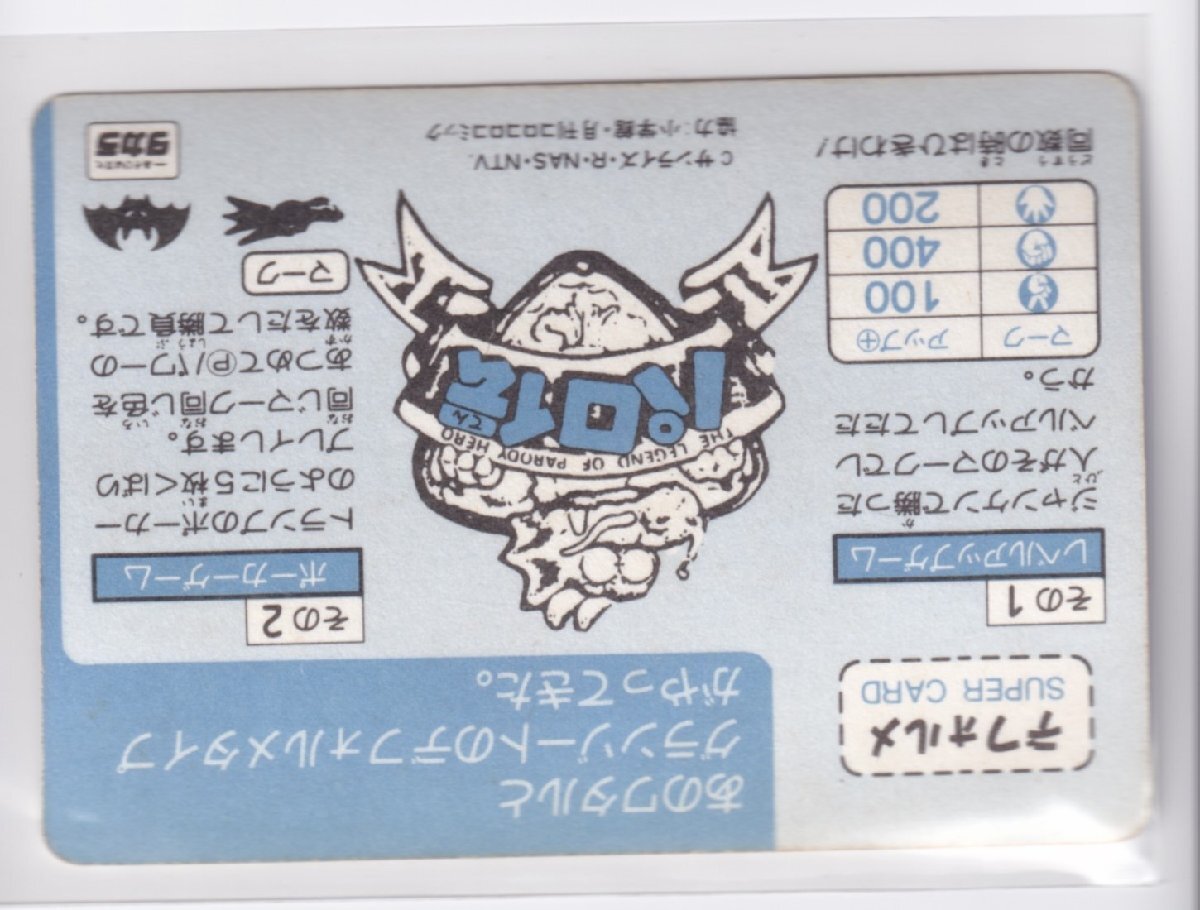 デフォルメ
SUPER CARD
あのワタルと
グランゾートのデフォルメタイプ
がやってきた。
その1
レベルアップゲーム
ジャンケンで勝った
人がそのマークでレ
ベルアップしてたた
かう。
マーク アップ⊕
100
400
200
同数の時はひきわけ!
THE LEGEND OF PARODY HERO
パロ伝
でん
C サンライズ・R・NAS・NTV.
協力:小学館・月刊コロコロコミック
その2
ポーカーゲーム
トランプのポーカー
のように5枚くばり
プレイします。
同じマーク同じ色を
あつめてⓅパワーの
数をたして勝負です。
マーク
タカラ